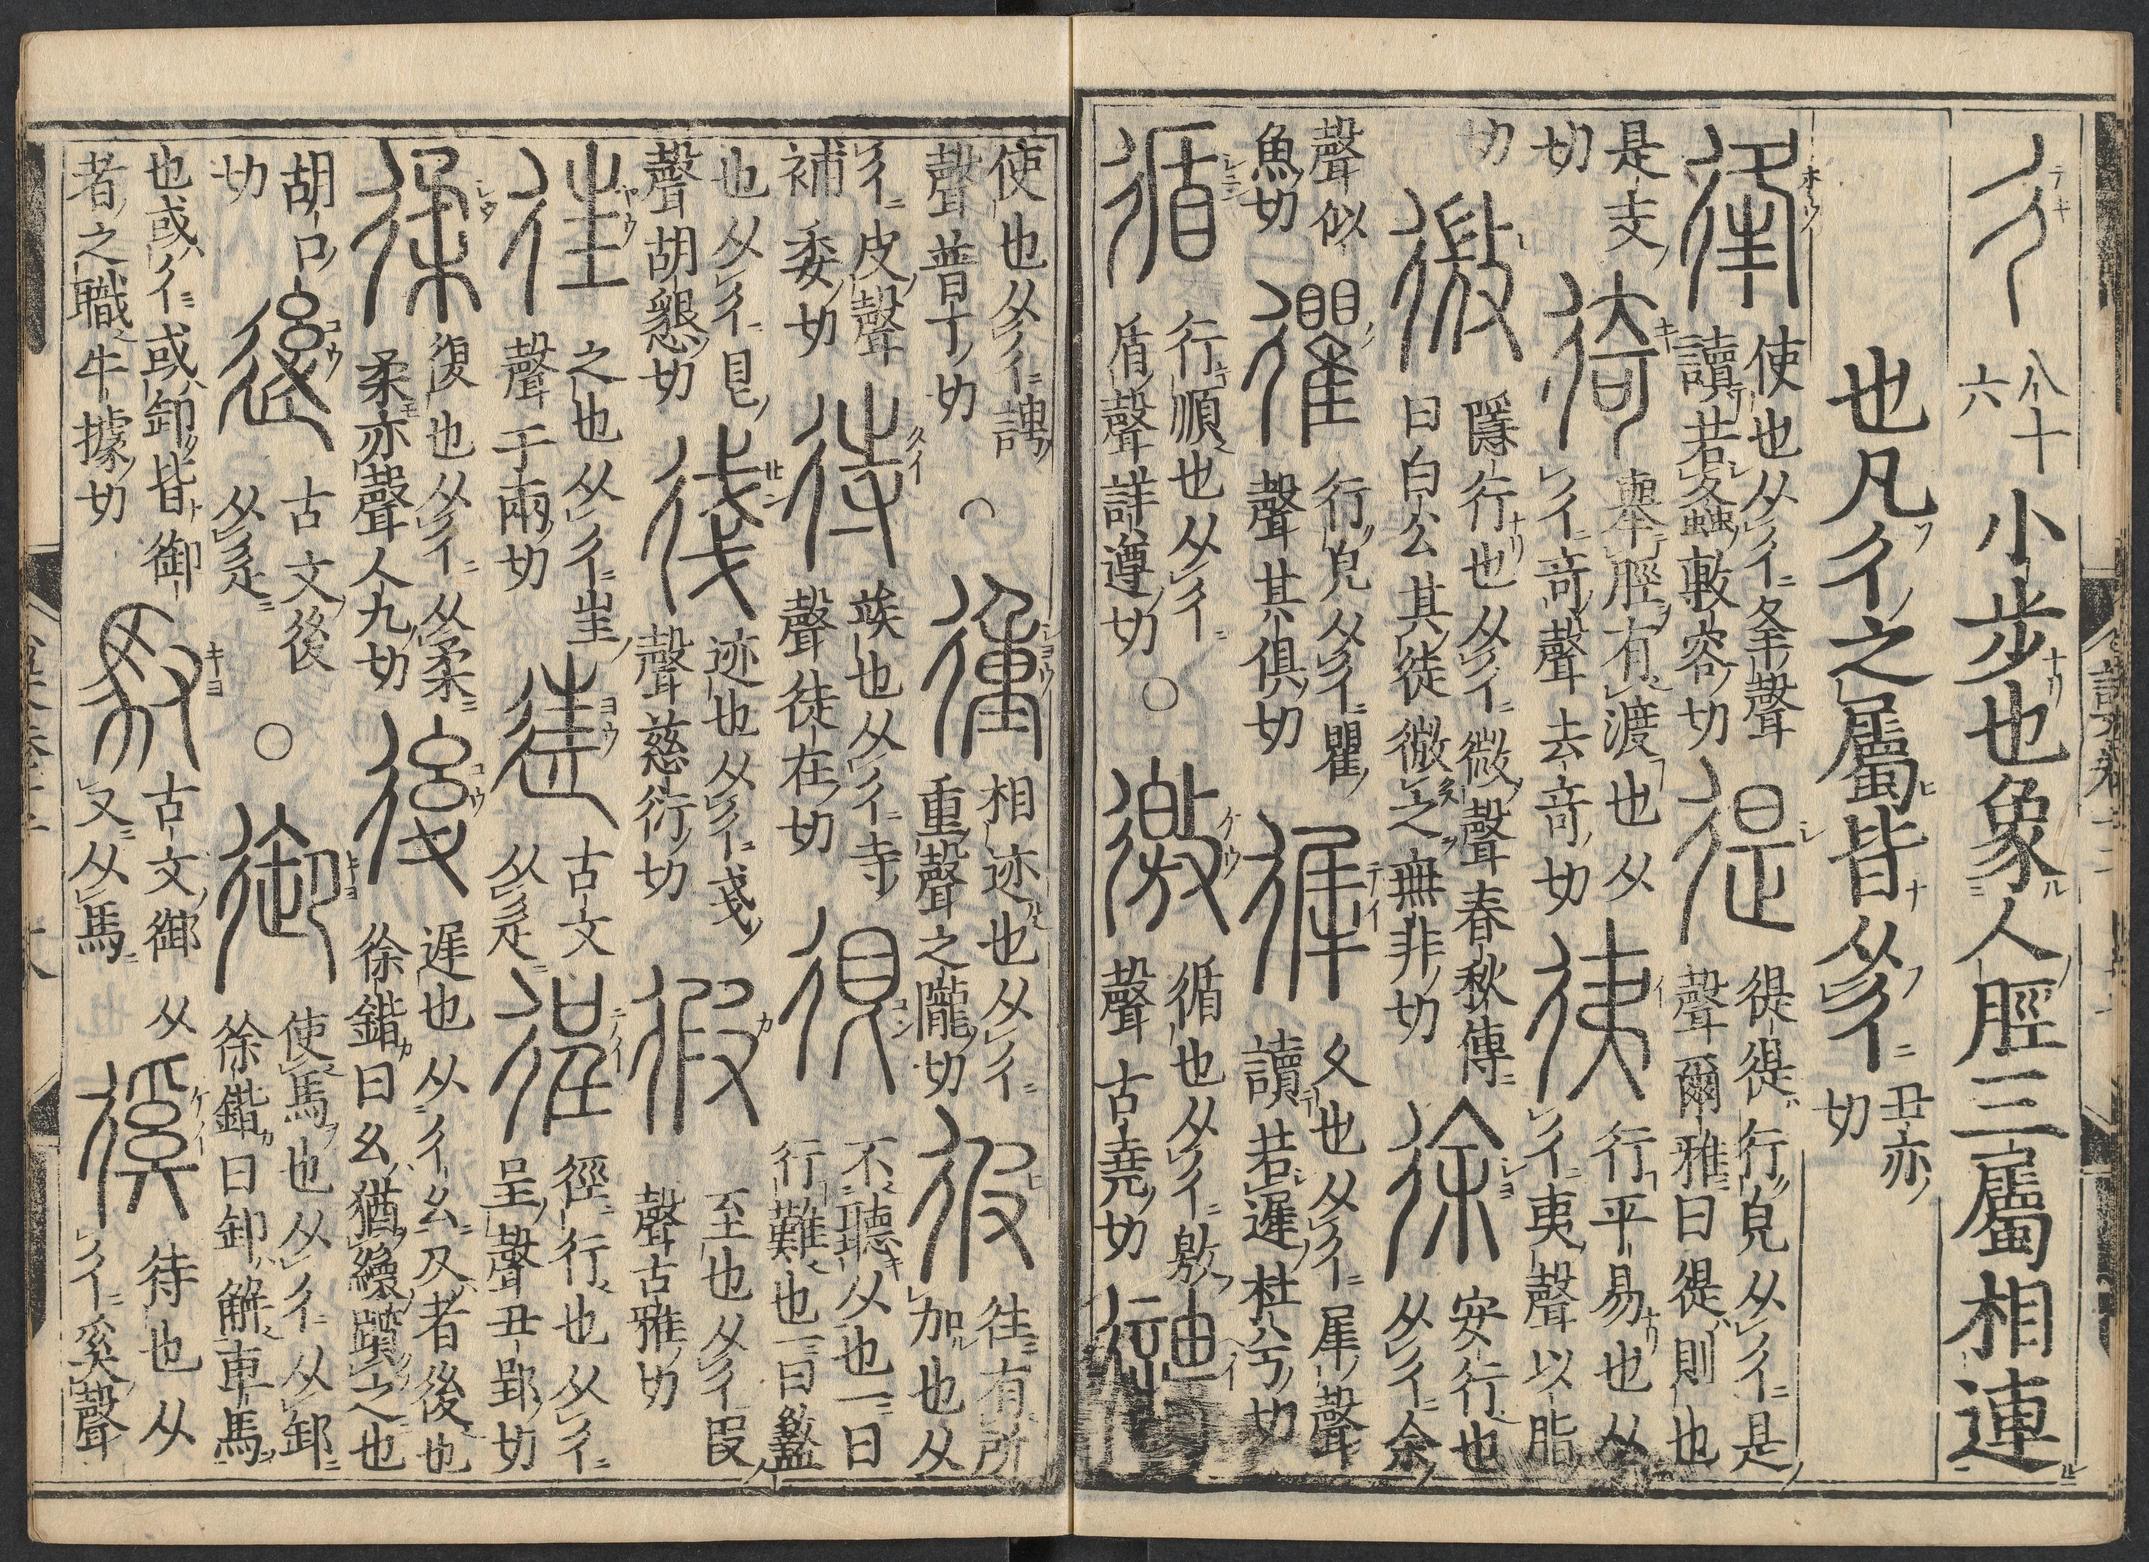 彳 八十六 小步也象人脛三屬相連
也凡彳之屬皆从彳 丑亦切
𢓱 使也从彳夆聲讀若螽敷容切 徥 徥徥行皃从彳是聲爾雅曰徥則也
是支切 徛 舉脛有渡也从彳奇聲去奇切 𢓡 行平易也从彳夷聲以脂
切 微 隱行也从彳𢼸聲春秋傳曰白公其徒微之無非切 徐 安行也从彳余
聲似魚切 忂 行皃从彳瞿聲其俱切 徲 久也从彳犀聲讀若遲杜兮切
循 行順也从彳盾聲詳遵切 ○ 徼 循也从彳敫聲古堯切
使也从彳諤聲普丁切 ○ 徸 相迹也从彳重聲之隴切 彼 往有所加也从
彳皮聲補委切 待 竢也从彳寺聲徒在切 很 不聽从也一曰行難也一曰盭
也从彳皃聲胡懇切 㣤 迹也从彳戔聲慈衍切 徦 至也从彳叚聲古雅切
往 之也从彳㞷聲于兩切 𨓹 古文从辵 徎 徑行也从彳呈聲丑郢切
𢔟 復也从彳从柔柔亦聲人九切 後 遲也从彳幺夊者後也徐鍇曰幺猶䌸躓之也
胡口切 𨒥 古文後从辵 ○ 御 使馬也从彳从卸徐鍇曰卸解車馬
也或彳或卸皆御者之職牛據切 馭 古文御从又从馬 徯 待也从彳奚聲